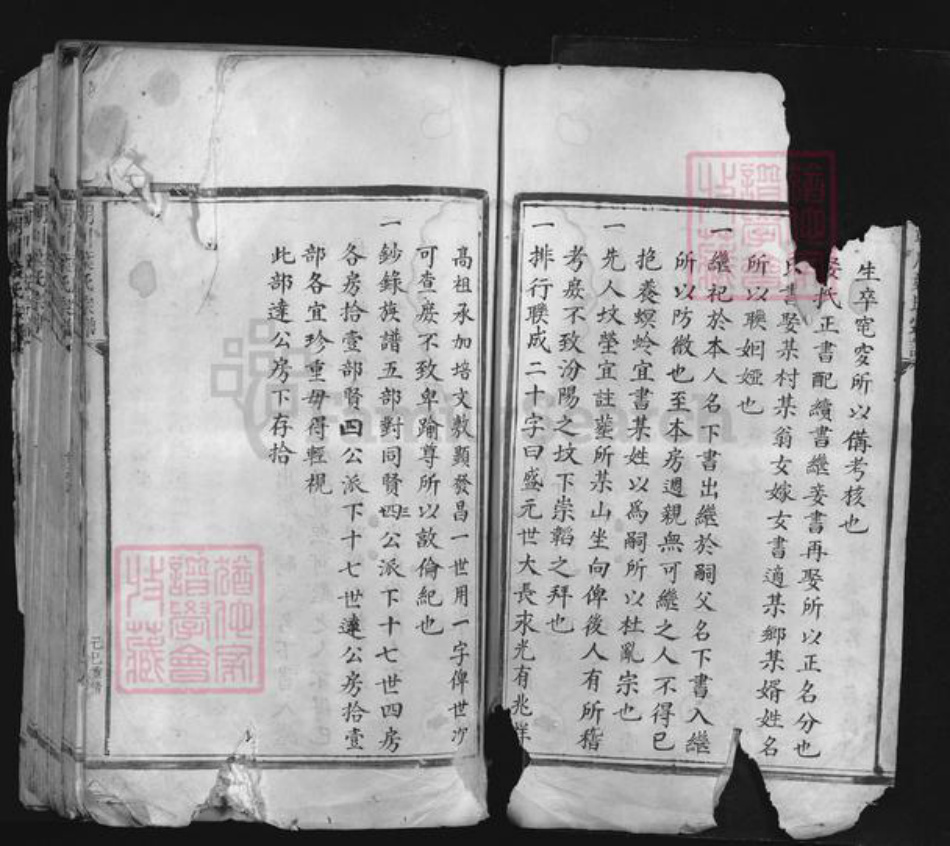 生卒窀穸所以備考核也
娶氏正書配續書繼妾書再娶所以正名分也
氏書娶某村某翁女嫁女書適某鄉某婿姓名
所以聯姻婭也
一繼祀於本人名下書出繼於嗣父名下書入繼
所以防微也至本房週親無可繼之人不得已
抱養螟蛉宜書某姓以為嗣所以杜亂宗也
一先人坟塋宜註塟所某山坐向俾後人有所稽
考庶不致汾陽之坟下崇韜之拜也
一排行聯成二十字曰盛元世大長永光有兆祥
高祖承加培文教顯發昌一世用一字俾世次
可查庶不致卑踰尊所以敦倫紀也
一鈔錄族譜五部對同賢四公派下十七世四房
各房拾壹部賢四公派下十七世達公房拾壹
部各宜珍重毋得輕視
此部達公房下存拾
己巳重修
猶他家譜學會收藏
猶他家譜學會收藏
FamilySearch